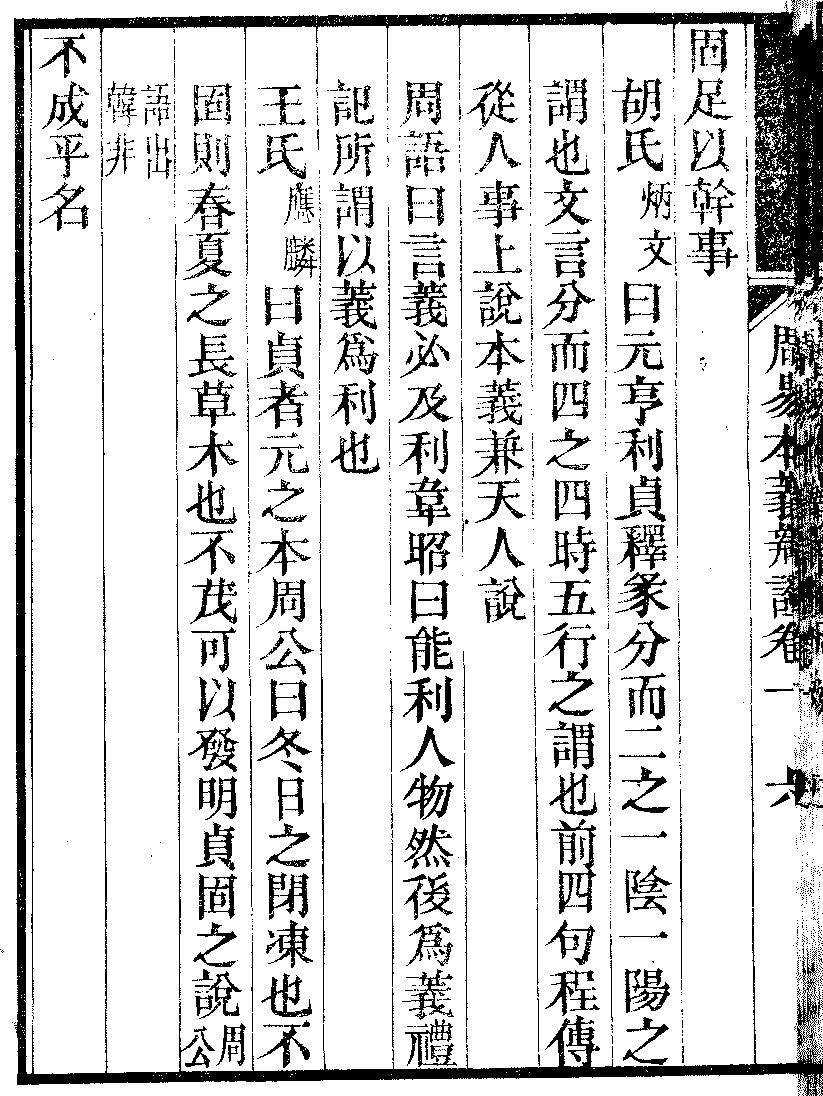 周易本義辯證卷一 六
固足以幹事
胡氏炳文曰元亨利貞釋彖分而二之一陰一陽之
謂也文言分而四之四時五行之謂也前四句程傳
從人事上說本義兼天人說
周語曰言義必及利韋昭曰能利人物然後為義禮
記所謂以義為利也
王氏應麟曰貞者元之本周公曰冬日之閉凍也不
固則春夏之長草木也不茂可以發明貞固之說周公
語出韓非
不成乎名